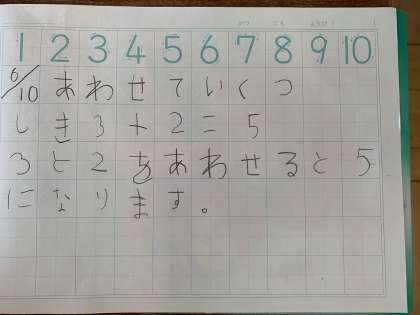 1 2 3 4 5 6 7 8 9 10
6/10 あわせていくつ
しき 3+2=5
3と2をあわせると5
になります。